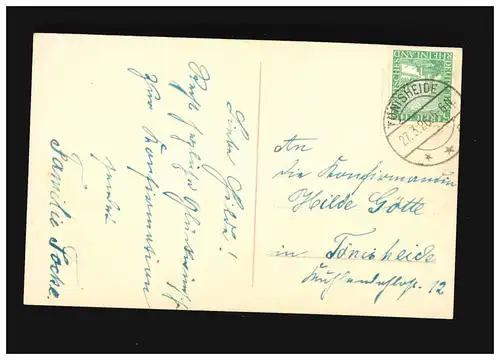 Liebe Hilde!
Recht herzliche Glückwünsche
Zur Konfirmation
sendet
Familie Foche.
RHEINLAND
TÖNISHEIDE
27.3.26
An
die Konfirmandin
Hilde Götte
in Tönisheide
12